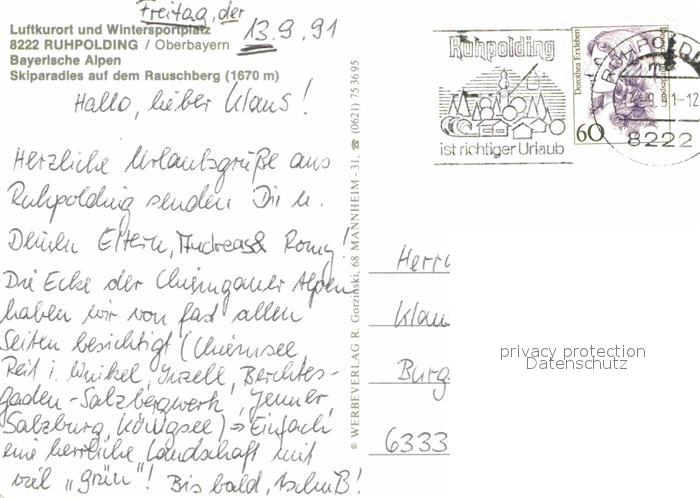 Freitag, der 13.9.91
Luftkurort und Wintersportplatz
8222 RUHPOLDING / Oberbayern
Bayerische Alpen
Skiparadies auf dem Rauschberg (1670 m)
Hallo, lieber Klaus!
Herzliche Urlaubsgrüße aus
Ruhpolding senden Dir u.
Deinen Eltern, Andreas & Romy!
Die Ecke der Chiemgauer Alpen
haben wir von fast allen
Seiten besichtigt (Chiemsee,
Reit i. Winkel, Inzell, Berchtes-
gaden-Salzbergwerk, Jenner,
Salzburg, Königsee) → Einfach
eine herrliche Landschaft mit
viel „grün"! Bis bald, tschüß!
© WERBEVERLAG R. Gorzinski, 68 MANNHEIM - 31, ☎ (0621) 753695
Ruhpolding
ist richtiger Urlaub
Dorothea Erxleben
60
RUHPOLDI
9.91-12
8222
Herrn
Klau
Burg
6333
privacy protection
Datenschutz